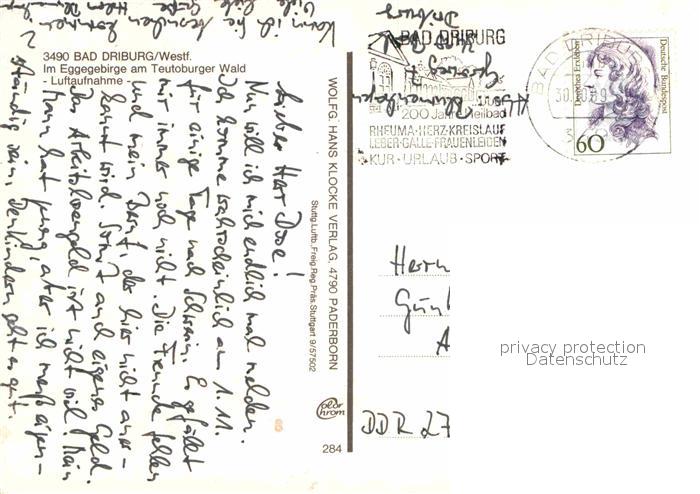 3490 BAD DRIBURG/Westf.
Im Eggegebirge am Teutoburger Wald
- Luftaufnahme -
Lieber Herr Dose!
Nun will ich mich endlich mal melden.
Ich komme wahrscheinlich am 1.11.
für einige Tage nach Schwerin. Es gefällt
mir immer noch nicht. Die Freunde fehlen
und mein Beruf, der hier nicht aner-
kannt wird. Somit auch eigenes Geld.
Das Arbeitslosengeld ist nicht viel. Mein
Mann hat genug, aber ich muß eigen-
ständig sein. Den Kindern geht es gut.
Kann ich Sie besuchen
Viele liebe Grüße
Driburg
WOLFG. HANS KLOCKE VERLAG, 4790 PADERBORN
Stuttg.Luftb.,Freig.Reg.Präs.Stuttgart 9/57502
color
chrom
284
BAD DRIBURG
200 Jahre Heilbad
RHEUMA·HERZ·KREISLAUF
LEBER·GALLE·FRAUENLEIDEN
KUR·URLAUB·SPORT
BAD DRIBURG
Deutsche Bundespost
60
Herrn
DDR 27
privacy protection
Datenschutz